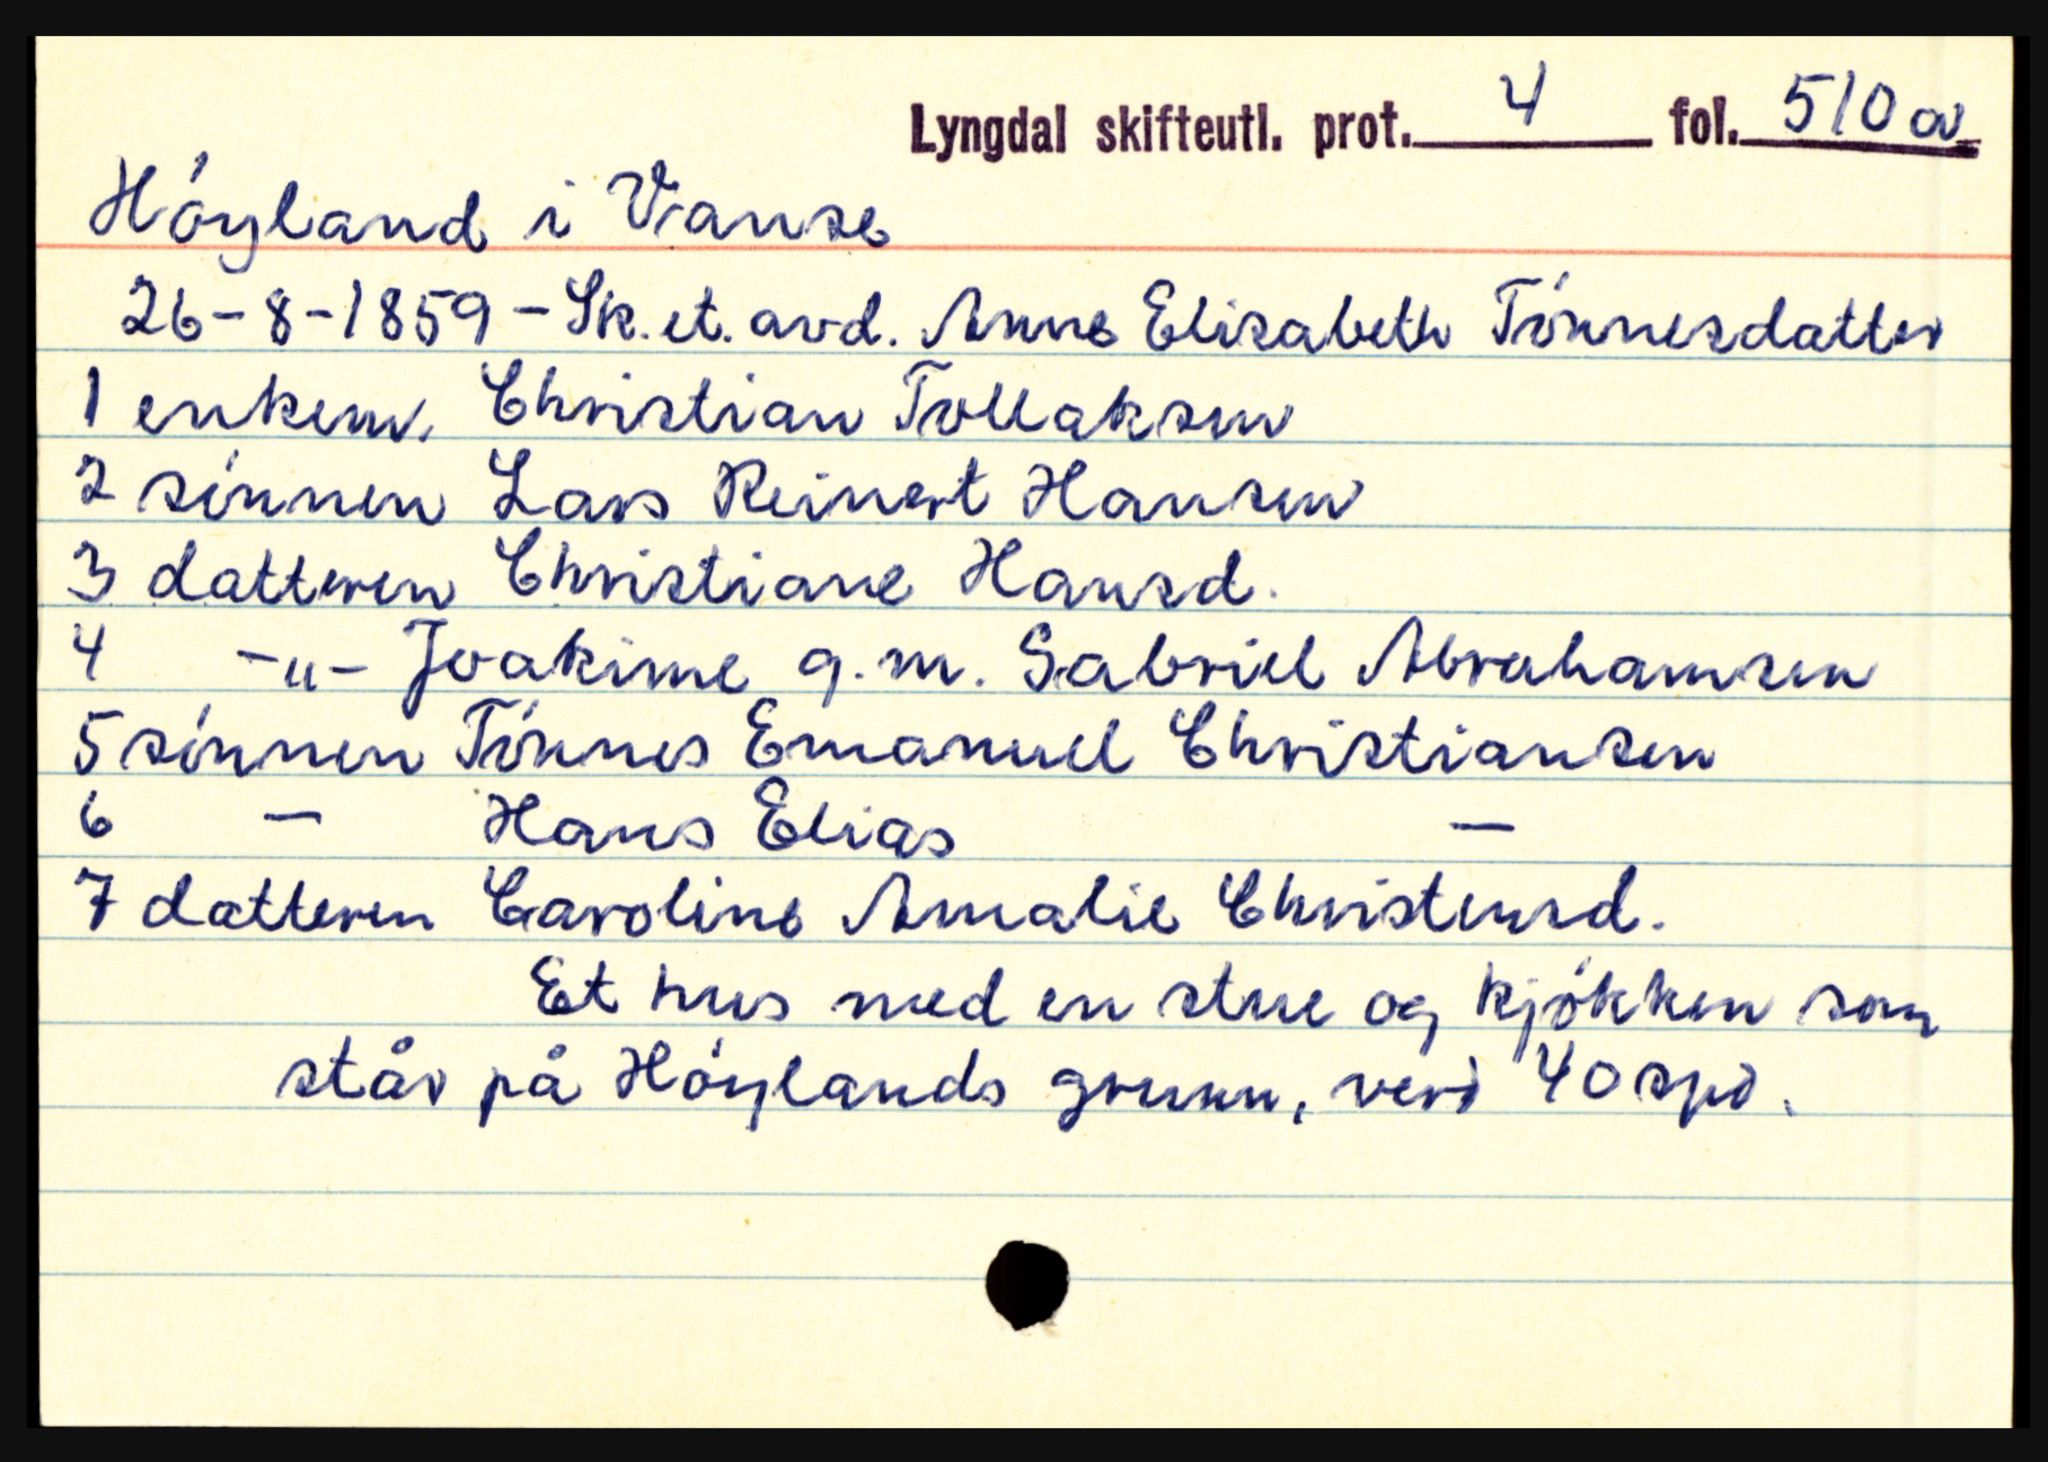 Lyngdal skifteutl. prot. 4 fol. 510 a
Hóyland i Vanse
26-8-1859 - Sk. et. avd. Anne Elisabeth Tónnesdatter
1 enkem. Christian Tollaksen
2 sónnen Lars Reinert Hansen
3 datteren Christiane Hansd.
4 -„- Joakime g.m. Gabriel Abrahamsen
5 sónnen Tónnes Emanuel Christiansen
6 - Hans Elias -
7 datteren Caroline Amalie Christensd.
Et hus med en stue og kjókken som
står på Hóylands grunn, verd 40 spd.